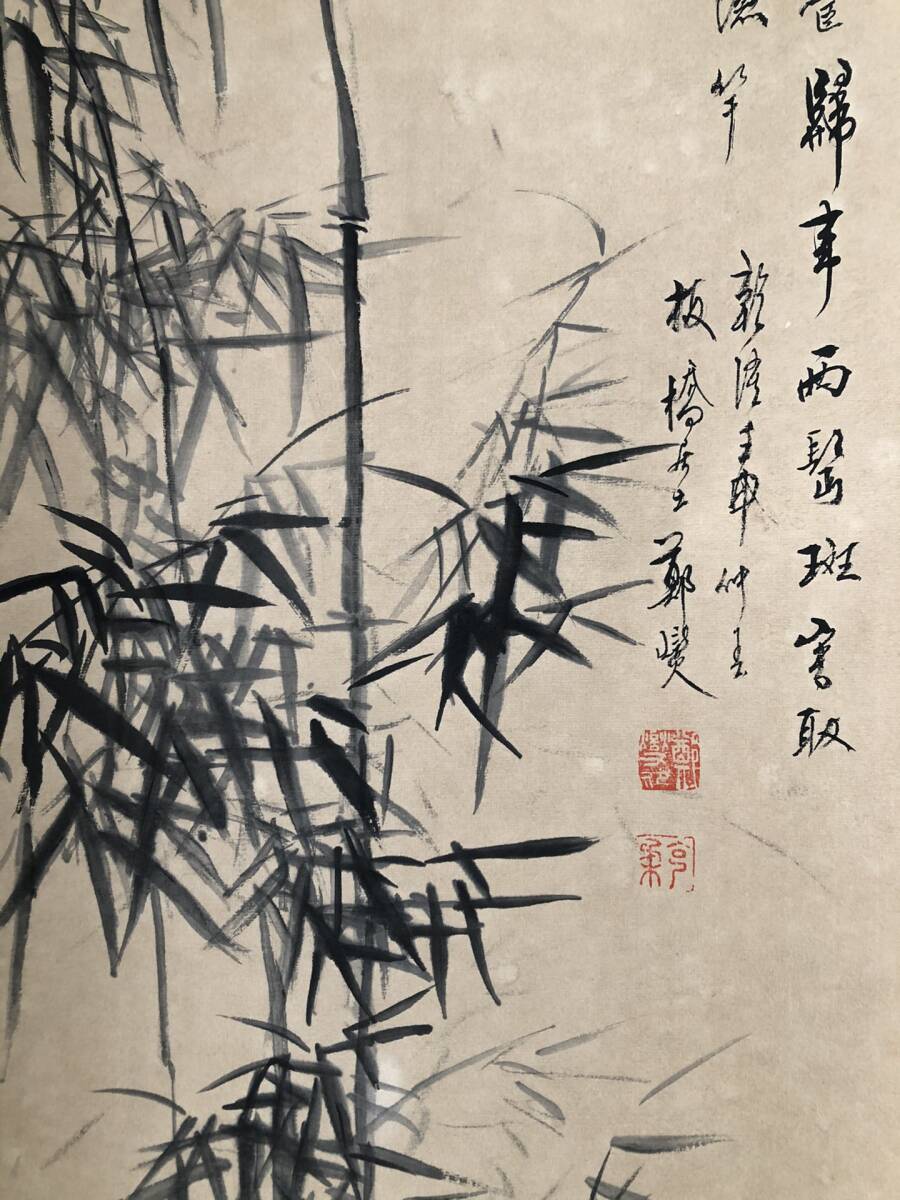 官歸來兩鬢斑寫取
漁竿
乾隆壬申仲春
板橋居士鄭燮
克柔